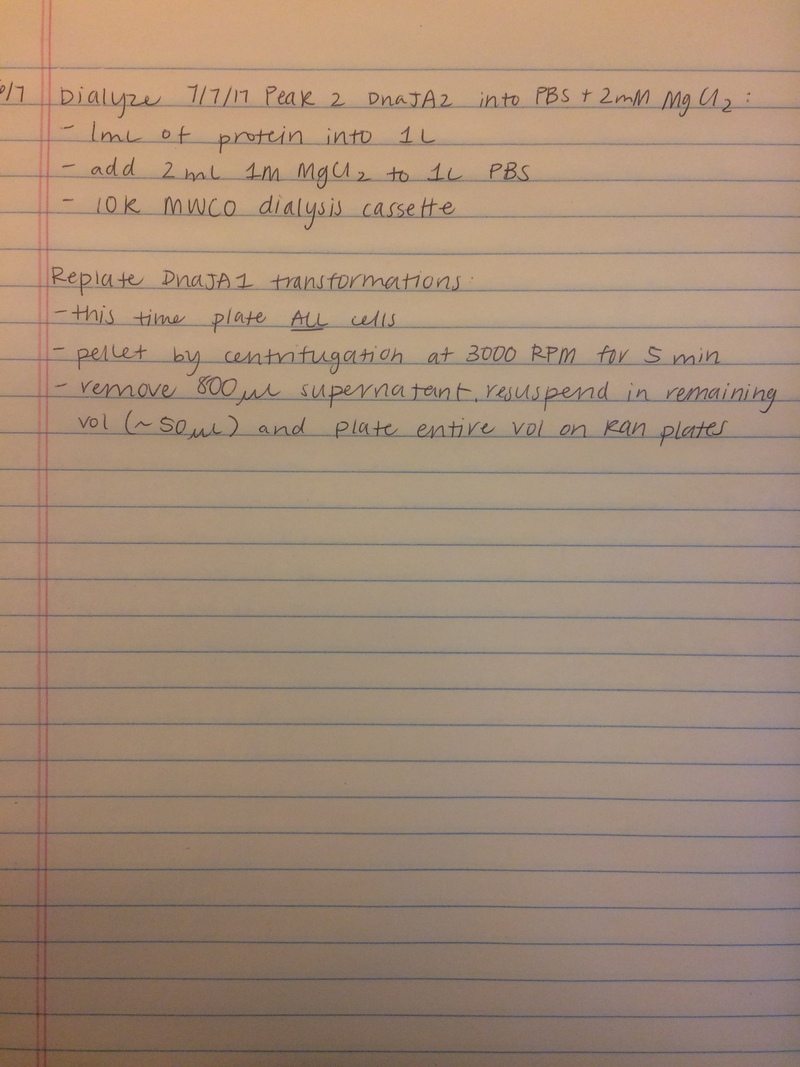 Dialyze 7/7/17 Peak 2 DnaJA2 into PBS + 2mM MgCl2:
- 1mL of protein into 1L
- add 2mL 1M MgCl2 to 1L PBS
- 10K MWCO dialysis cassette
Replate DnaJA1 transformations:
- this time plate ALL cells
- pellet by centrifugation at 3000 RPM for 5 min
- remove 800µL supernatant, resuspend in remaining
vol (~50µL) and plate entire vol on Kan plates